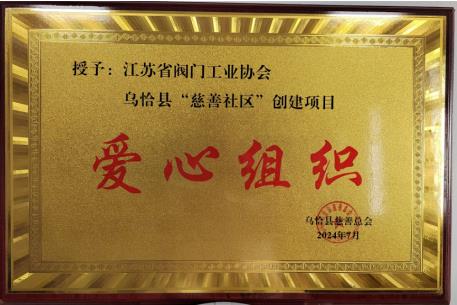 授予：江苏省阀门工业协会
乌恰县“慈善社区”创建项目
爱心组织
乌恰县慈善总会
2024年7月